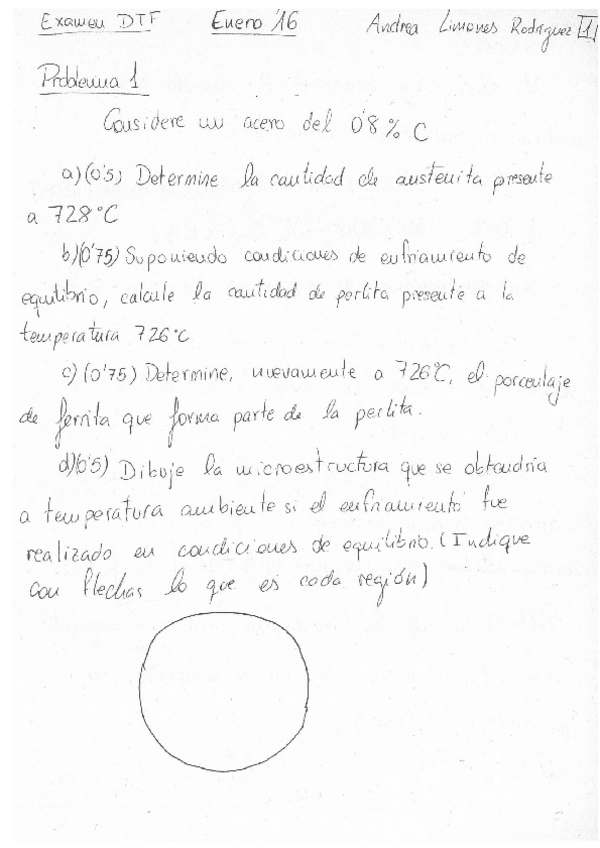 Examen DTF Enero '16 Andrea Limones Rodriguez 1
Problema 1
Considere un acero del 0'8% C
a) (0'5) Determine la cantidad de austenita presente
a 728°C
b) (0'75) Suponiendo condiciones de enfriamiento de
equilibrio, calcule la cantidad de perlita presente a la
temperatura 726°C
c) (0'75) Determine, nuevamente a 726°C, el porcentaje
de ferrita que forma parte de la perlita.
d) (0'5) Dibuje la microestructura que se obtendría
a temperatura ambiente si el enfriamiento fue
realizado en condiciones de equilibrio. (Indique
con flechas lo que es cada región)